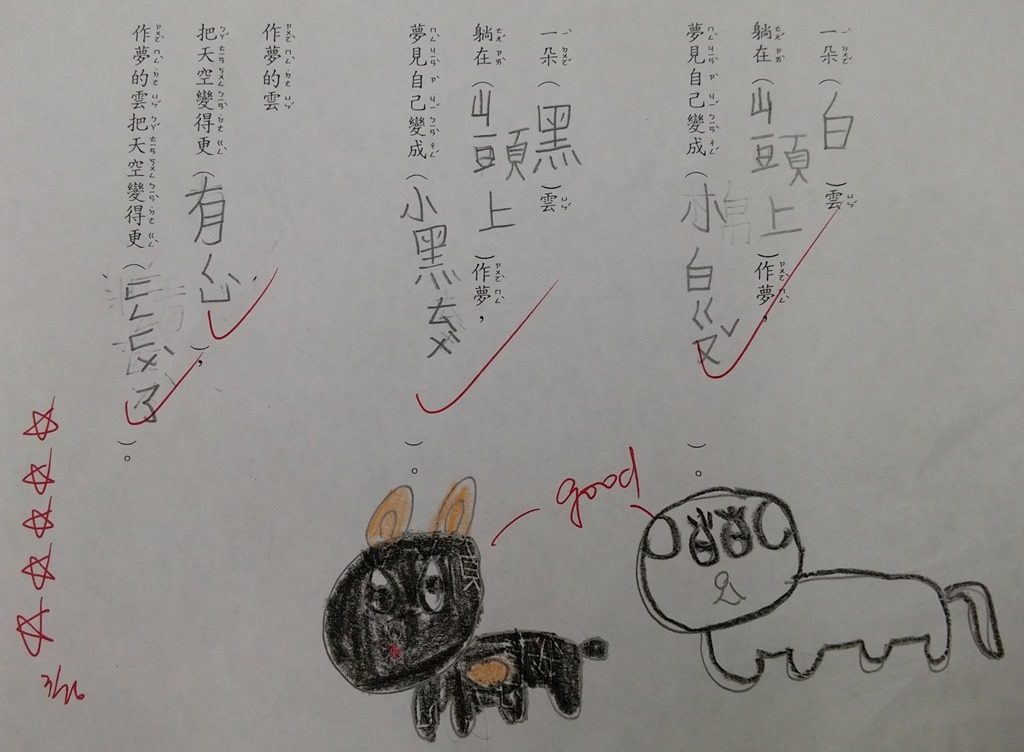 一朵（白）雲
躺在（山頭上）作夢，
夢見自己變成（小白ㄍㄡˇ）。
一朵（黑）雲
躺在（山頭上）作夢，
夢見自己變成（小黑ㄊㄨˋ）。
作夢的雲
把天空變得更（有ㄑㄩˋ），
作夢的雲把天空變得更（ㄈㄥㄈㄨˋ了）。
good
3/26